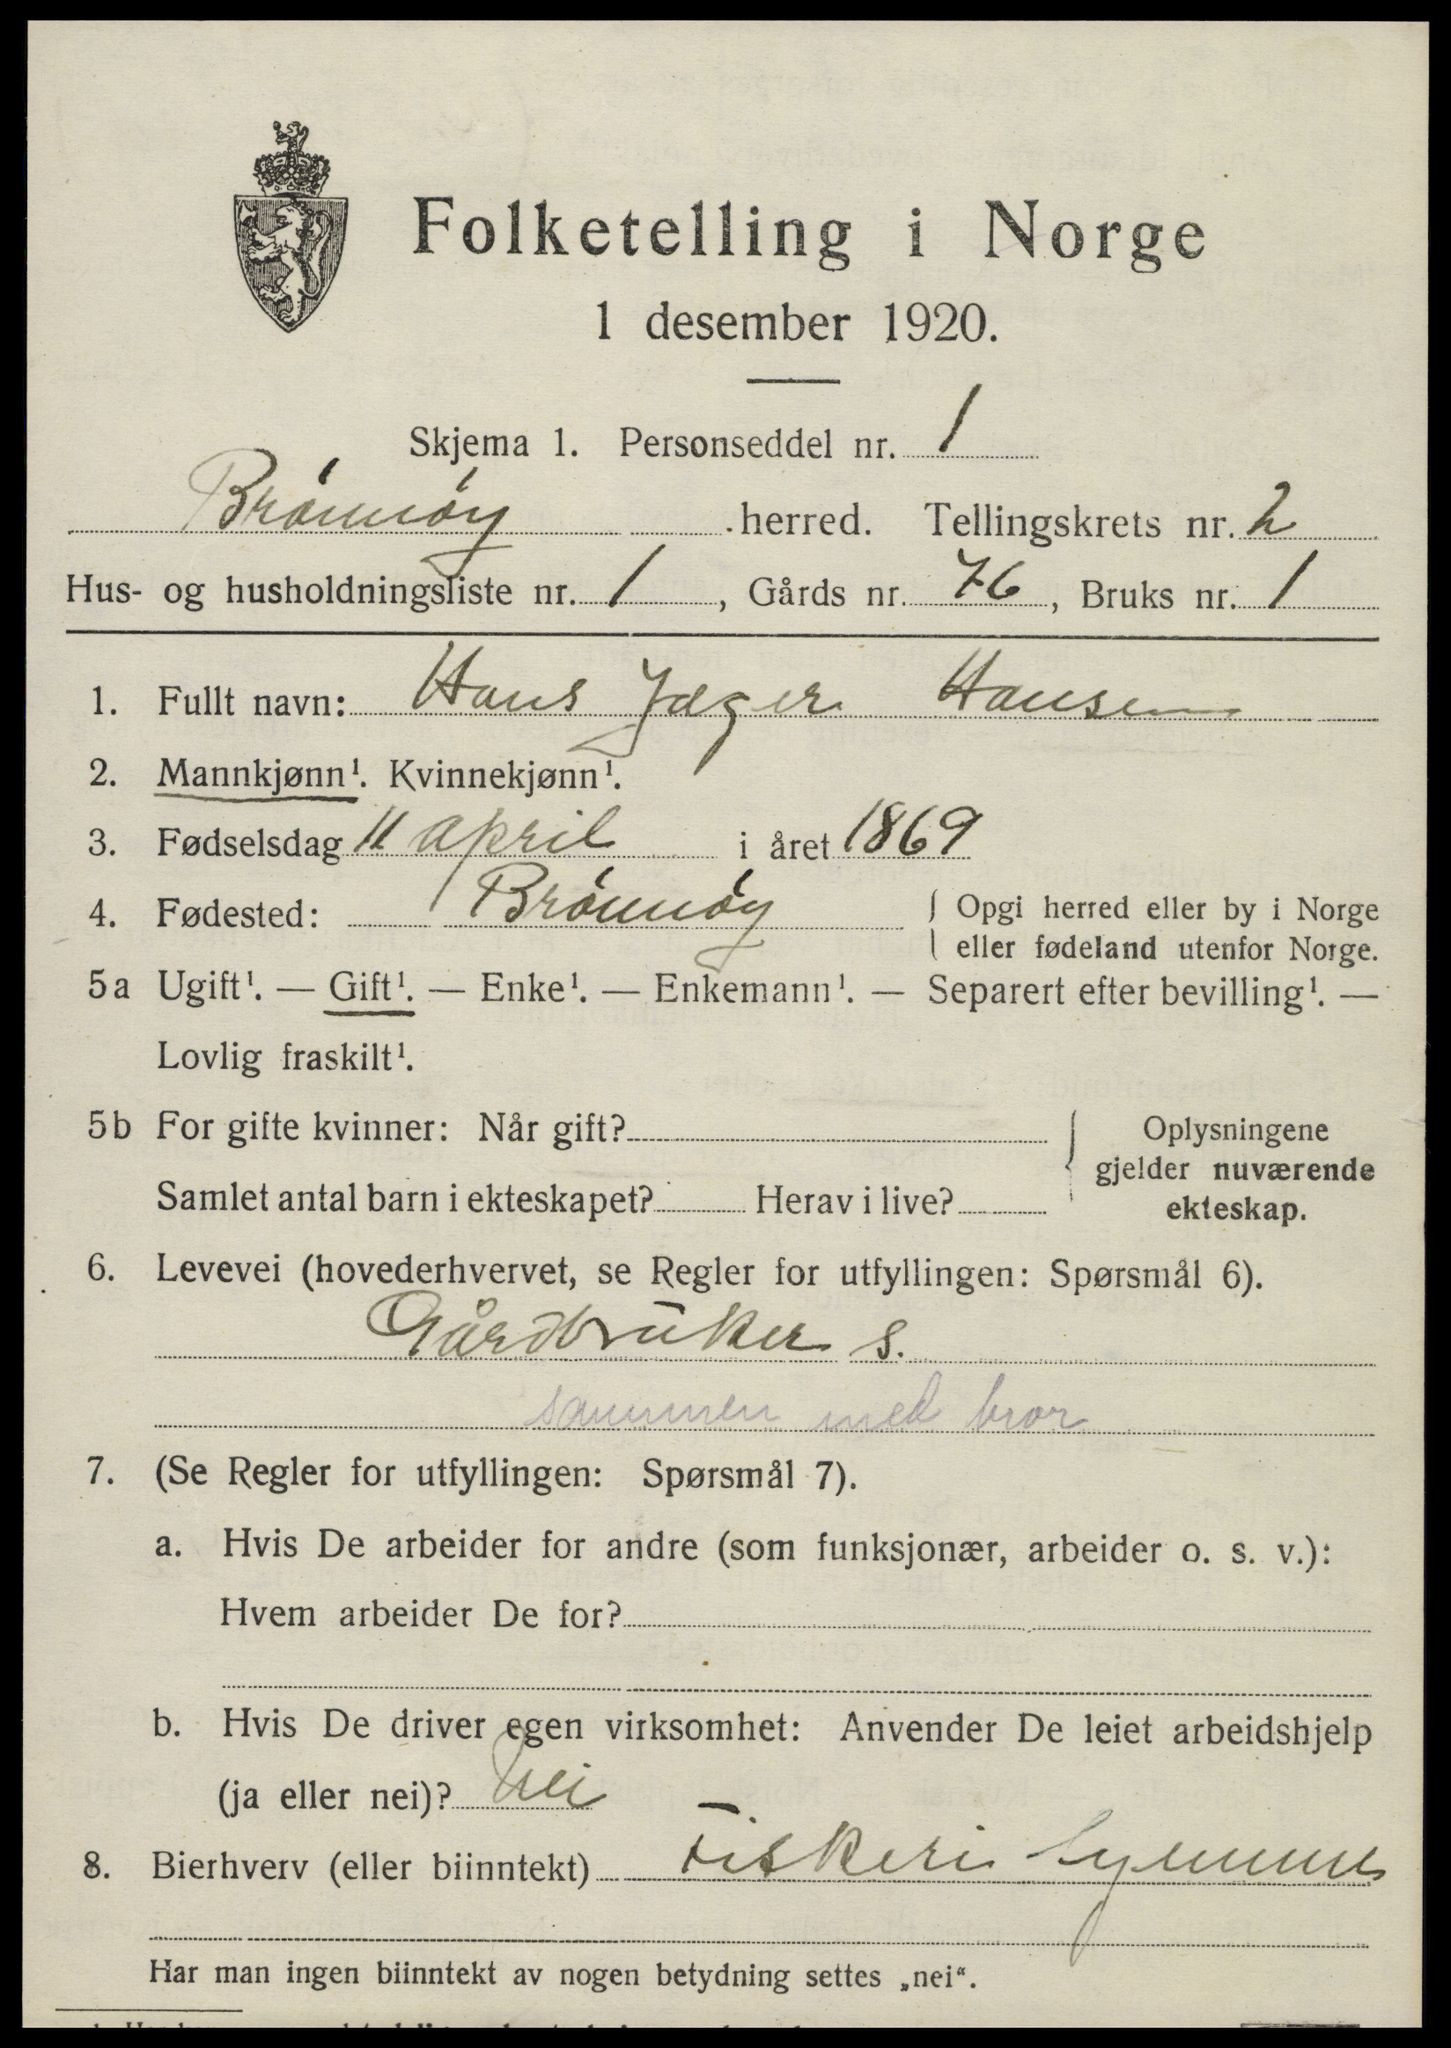 Folketelling i Norge
1 desember 1920.
Skjema 1. Personseddel nr. 1
Brönnöy herred. Tellingskrets nr. 2
Hus- og husholdningsliste nr. 1, Gårds nr. 76, Bruks nr. 1
1. Fullt navn: Hans Jæger Hansen
2. Mannkjønn¹. Kvinnekjønn¹.
3. Fødselsdag 11 april i året 1869
4. Fødested: Brönnöy { Opgi herred eller by i Norge
eller fødeland utenfor Norge.
5a Ugift¹. — Gift¹. — Enke¹. — Enkemann¹. — Separert efter bevilling¹. —
Lovlig fraskilt¹.
5b For gifte kvinner: Når gift?
Samlet antal barn i ekteskapet? Herav i live?
{ Oplysningene
gjelder nuværende
ekteskap.
6. Levevei (hovederhvervet, se Regler for utfyllingen: Spørsmål 6).
Gårdbruker s.
sammen med bror
7. (Se Regler for utfyllingen: Spørsmål 7).
a. Hvis De arbeider for andre (som funksjonær, arbeider o. s. v.):
Hvem arbeider De for?
b. Hvis De driver egen virksomhet: Anvender De leiet arbeidshjelp
(ja eller nei)? Nei
8. Bierhverv (eller biinntekt) Fiskeri
Har man ingen biinntekt av nogen betydning settes „nei“.